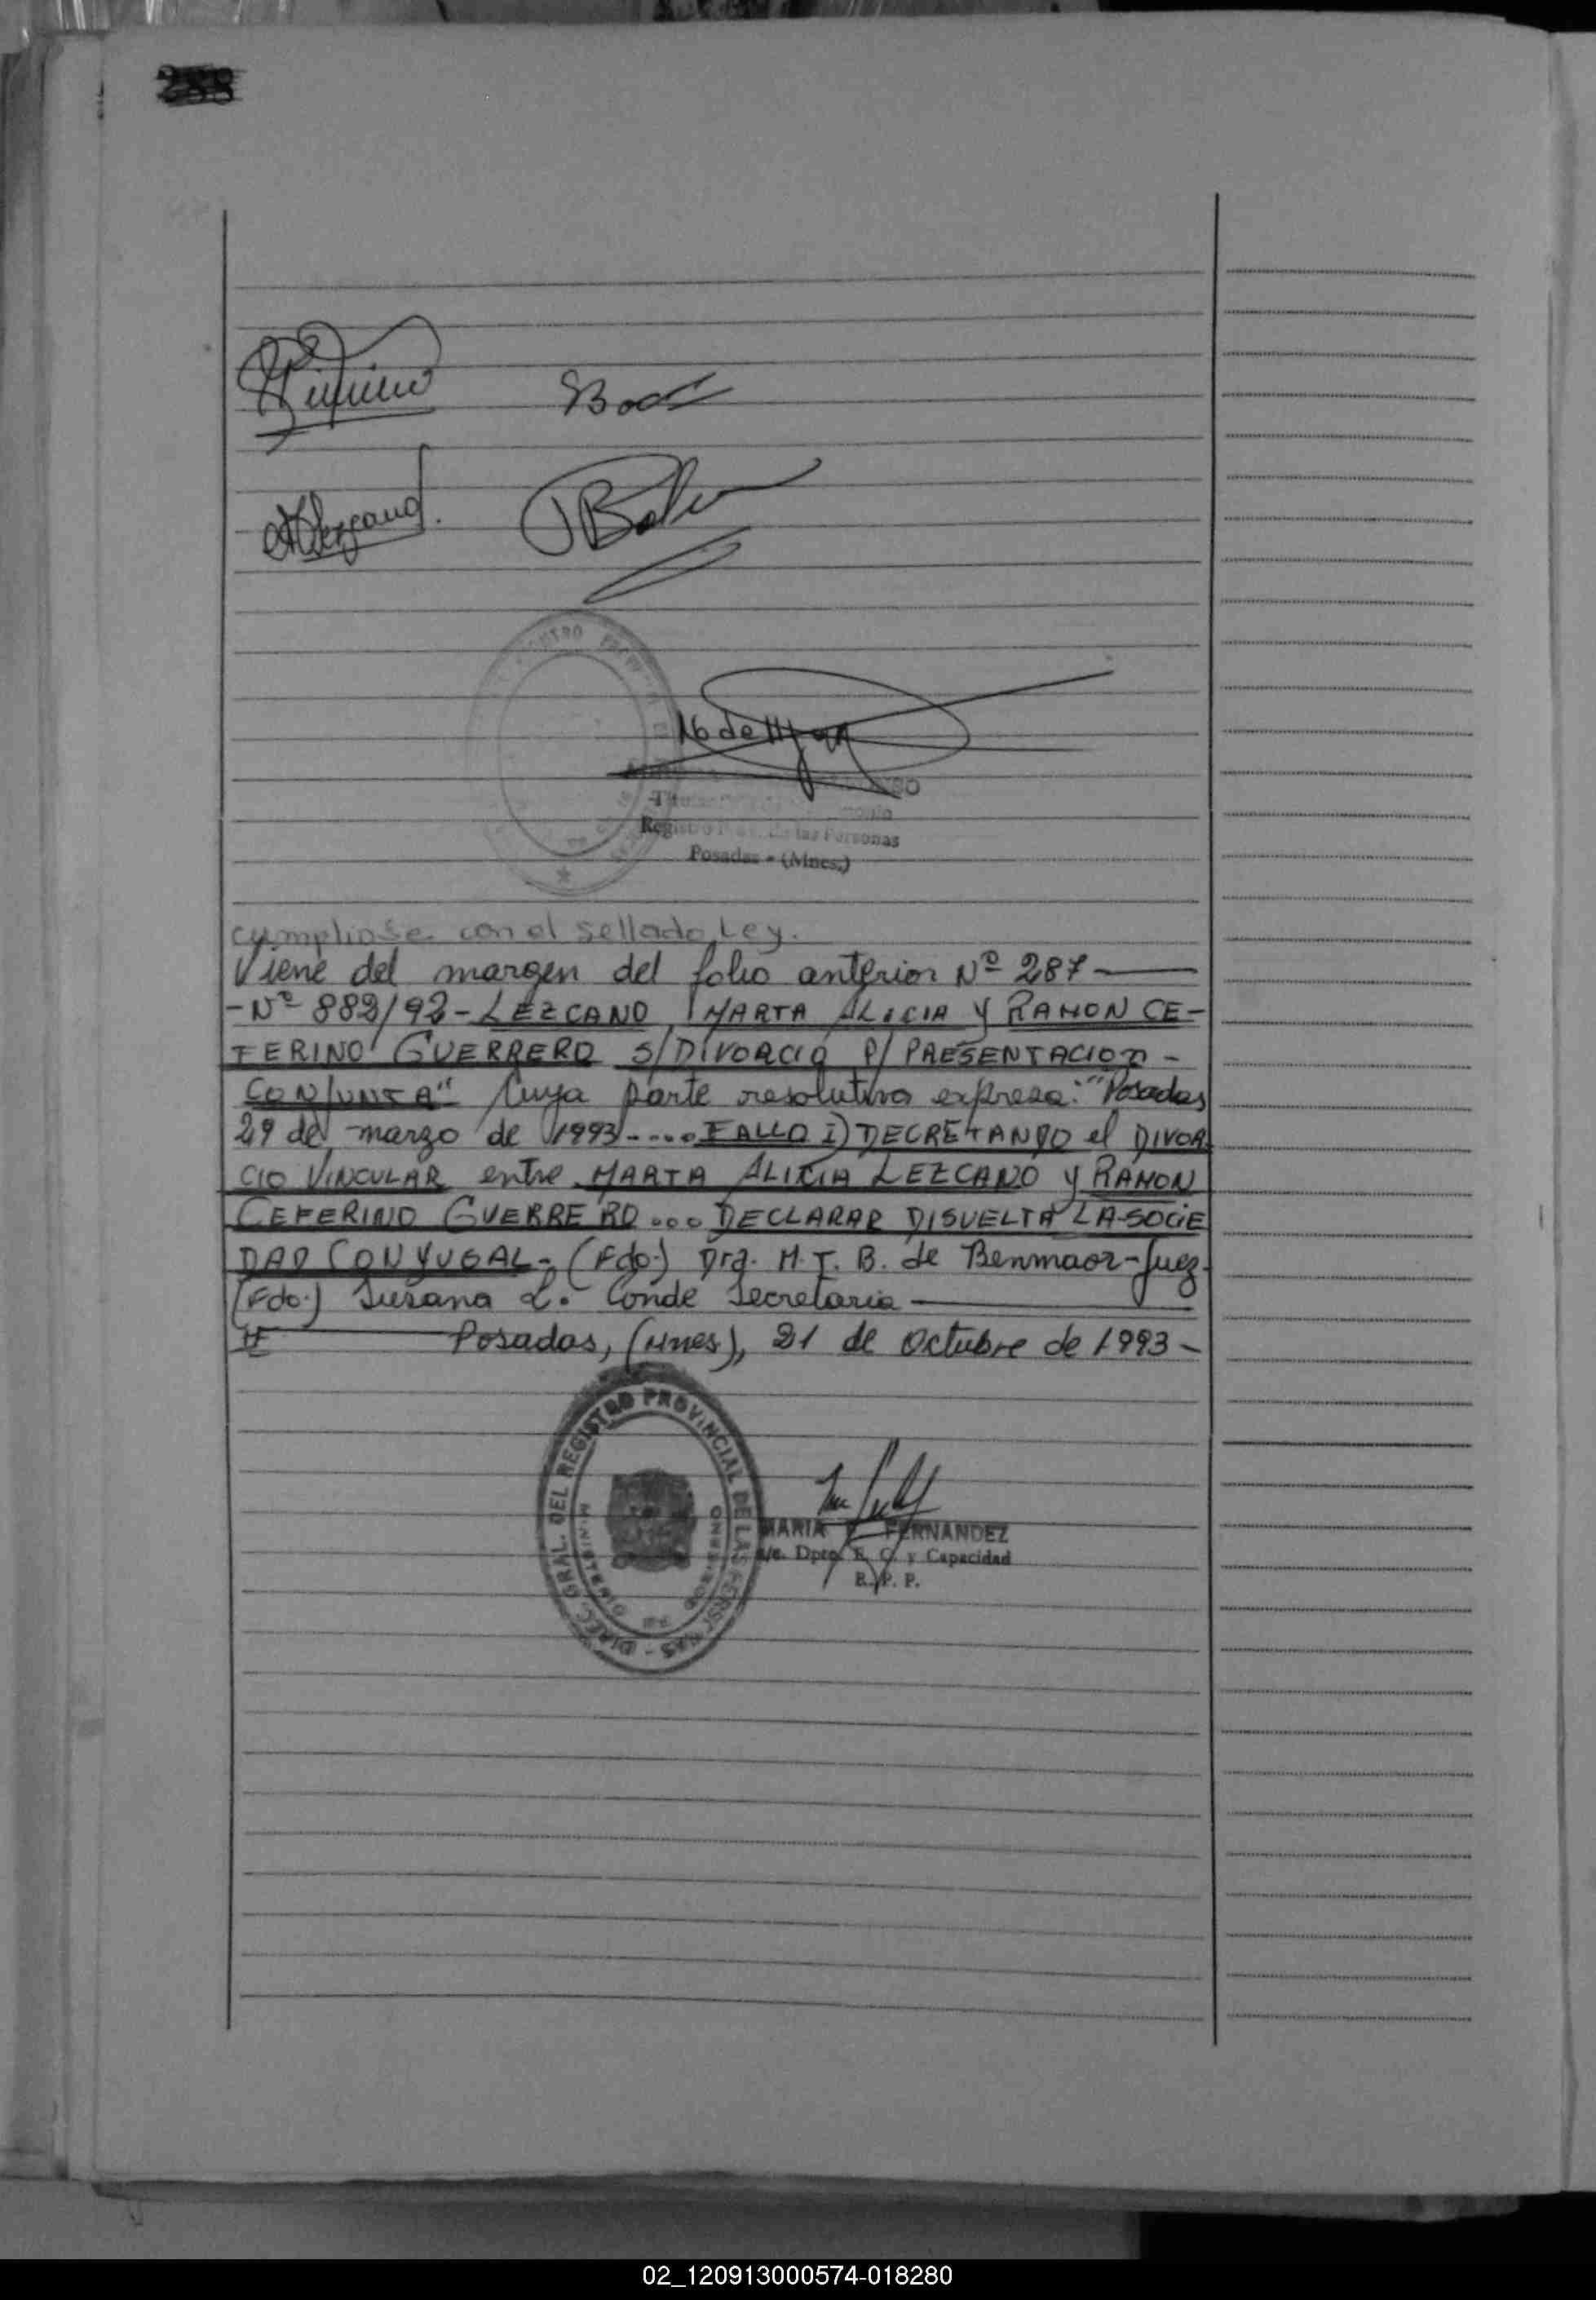 288
Lezcano
Registro de las Personas
Posadas - (Mnes.)
cumpliose con el sellado Ley.
Viene del margen del folio anterior Nº 287
- Nº 889/92 - LEZCANO, MARTA ALICIA Y RAMON CE-
FERINO GUERRERO S/DIVORCIO P/ PRESENTACION -
CONJUNTA" Cuya parte resolutiva expresa: "Posadas
29 de marzo de 1993 .... FALLO I) DECRETANDO el DIVOR
CIO VINCULAR entre MARTA ALICIA LEZCANO Y RAMON
CEFERINO GUERRERO ... DECLARAR DISUELTA LA SOCIE
DAD CONYUGAL - (Fdo.) Dra. M. T. B. de Benmaor - Juez.
(Fdo.) Susana L. Conde Secretaria
Posadas, (Mnes), 21 de Octubre de 1993 -
DIREC. GRAL. DEL REGISTRO PROVINCIAL DE LAS PERSONAS
MARIA FERNANDEZ
a/c. Dpto. E. C. y Capacidad
R. P. P.
02_120913000574-018280